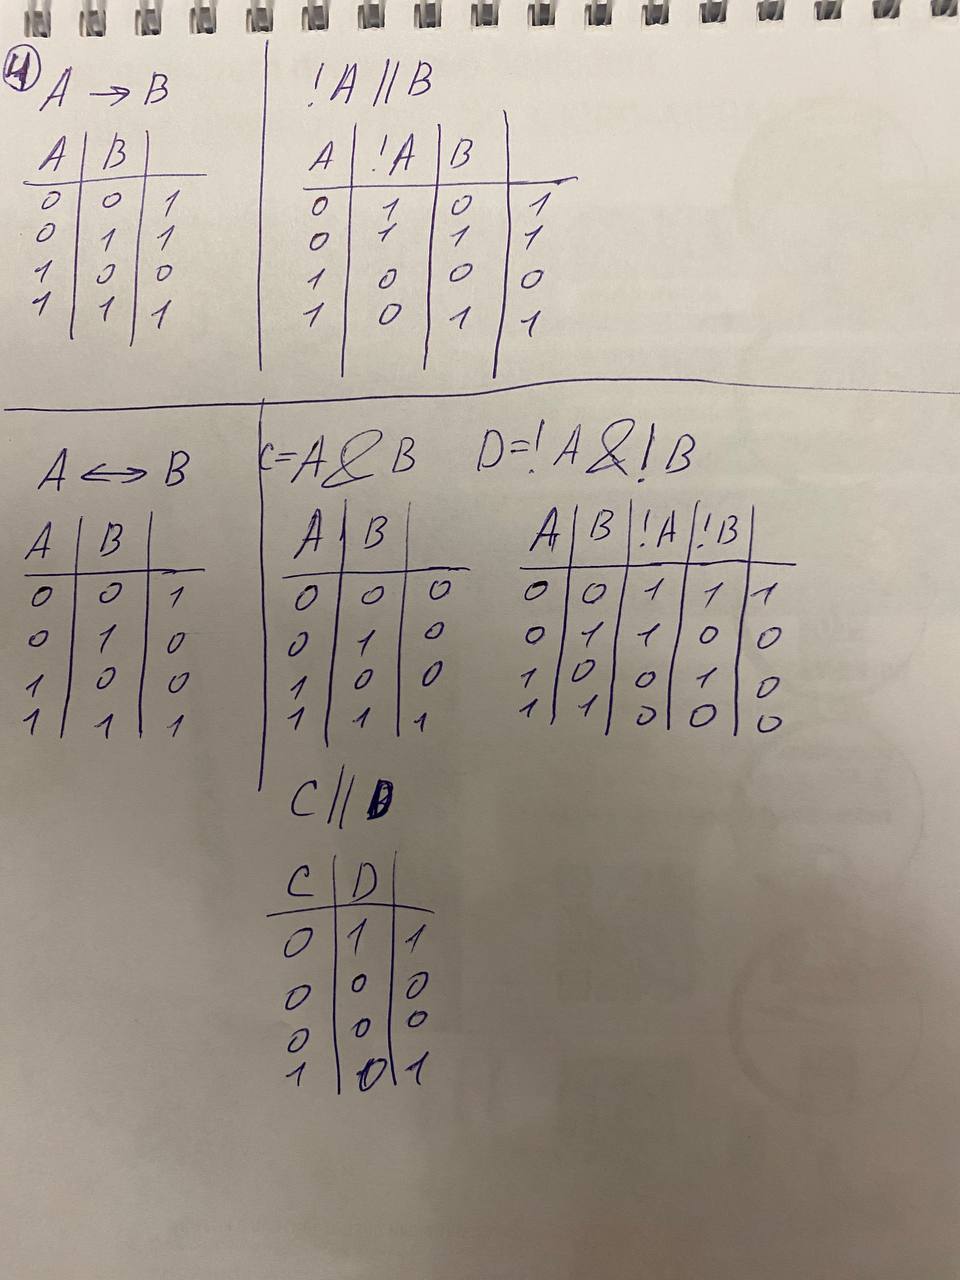 4
A → B
A B
0 0 1
0 1 1
1 0 0
1 1 1
!A || B
A !A B
0 1 0 1
0 1 1 1
1 0 0 0
1 0 1 1
A ↔ B
A B
0 0 1
0 1 0
1 0 0
1 1 1
C=A & B
A B
0 0 0
0 1 0
1 0 0
1 1 1
D=!A & !B
A B !A !B
0 0 1 1 1
0 1 1 0 0
1 0 0 1 0
1 1 0 0 0
C || D
C D
0 1 1
0 0 0
0 0 0
1 0 1